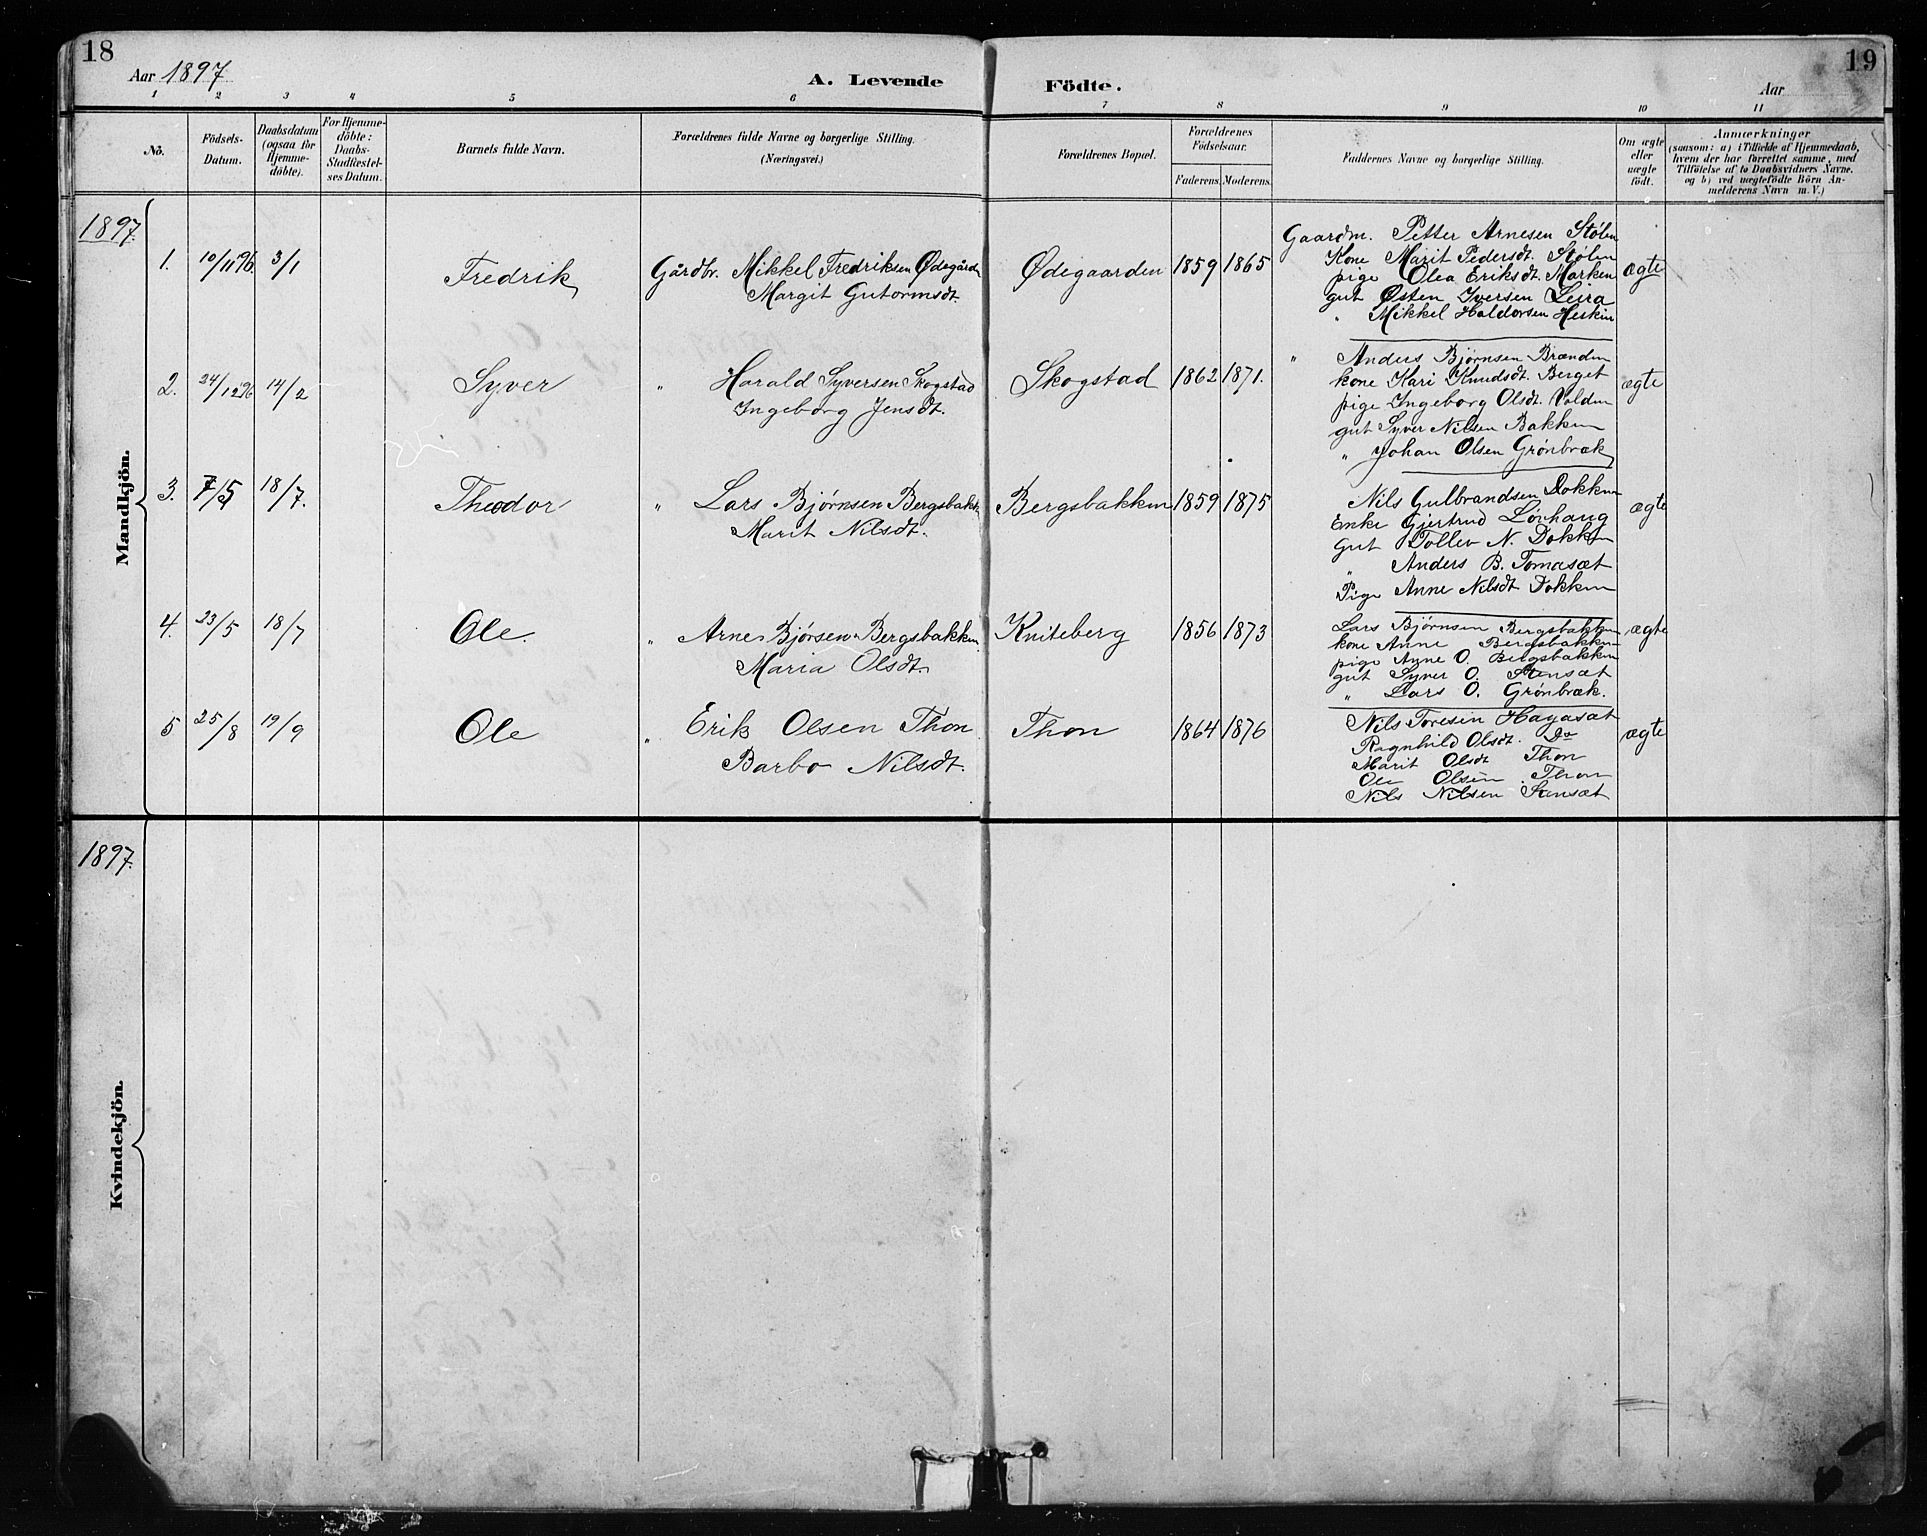 18
19
Aar 1897
A. Levende
Födte.
Aar
1 2 3 4 5 6 7 8 9 10 11
No.
Födsels-
Datum.
Daabsdatum
(ogsaa för
Hjemme-
döbte).
For Hjemme-
döbte:
Daabs-
Stadfæstel-
ses Datum.
Barnets fulde Navn.
Forældrenes fulde Navne og borgerlige Stilling.
(Næringsvei.)
Forældrenes Bopæl.
Forældrenes
Födselsaar.
Faderens. Moderens.
Faddernes Navne og borgerlige Stilling.
Om ægte
eller
uægte
födt.
Anmærkninger
(saasom: a) i Tilfælde af Hjemmedaab,
hvem der har forrettet samme, med
Tilföielse af to Daabsvidners Navne.
og b) ved uægtefödte Börn An-
melderens Navn m. V.)
1897
Mandkjön.
1. 10/11 96. 3/1 Fredrik Gårdbr. Mikkel Fredriksen Ødegården
Margit Gutormsdt.
Ødegaarden 1859 1865
Gaardm. Petter Arnesen Stølen
Kone Marit Pedersdt. Stølen
pige Olea Eriksdt. Marken
gut Østen Iversen Leira
" Mikkel Haldorsen Heskin
ægte
2. 24/12 96 14/2 Syver " Harald Syversen Skogstad
Ingeborg Jensdt.
Skogstad 1862 1871.
" Anders Bjørnsen Brænden
kone Kari Knudsdt. Berget
pige Ingeborg Olsdt. Volden
gut Syver Nilsen Bakken
" Johan Olsen Grønbræk
ægte
3. 18/7. Theodor " Lars Bjørnsen Bergsbakk
Marit Nilsdt.
Bergsbakken 1859 1875
Nils Gulbrandsen Dokken
Enke Gjertrud Lønhaug
Gut Tollev N. Dokken
" Anders B. Tomasæt
Pige Anne Nilsdt Dokken
ægte
4. 23/5 18/7 Ole. " Arne Bjørsen Bergsbakken
Maria Olsdt.
Kniteberg 1856 1873
Lars Bjørnsen Bergsbakken
kone Anne Bergsbakken
pige Anne O. Bergsbakken
gut Syver O. Stensæt
" Lars O. Grønbræk.
ægte
5 25/8 19/9 Ole " Erik Olsen Thon
Barbo Nilsdt.
Thon 1864 1876
Nils Toresen Hagasæt
Ragnhild Olsdt. Do
Marit Olsdt Thon
Ole Olsen Thon
Nils Nilsen Stensæt
ægte
1897.
Kvindekjön.